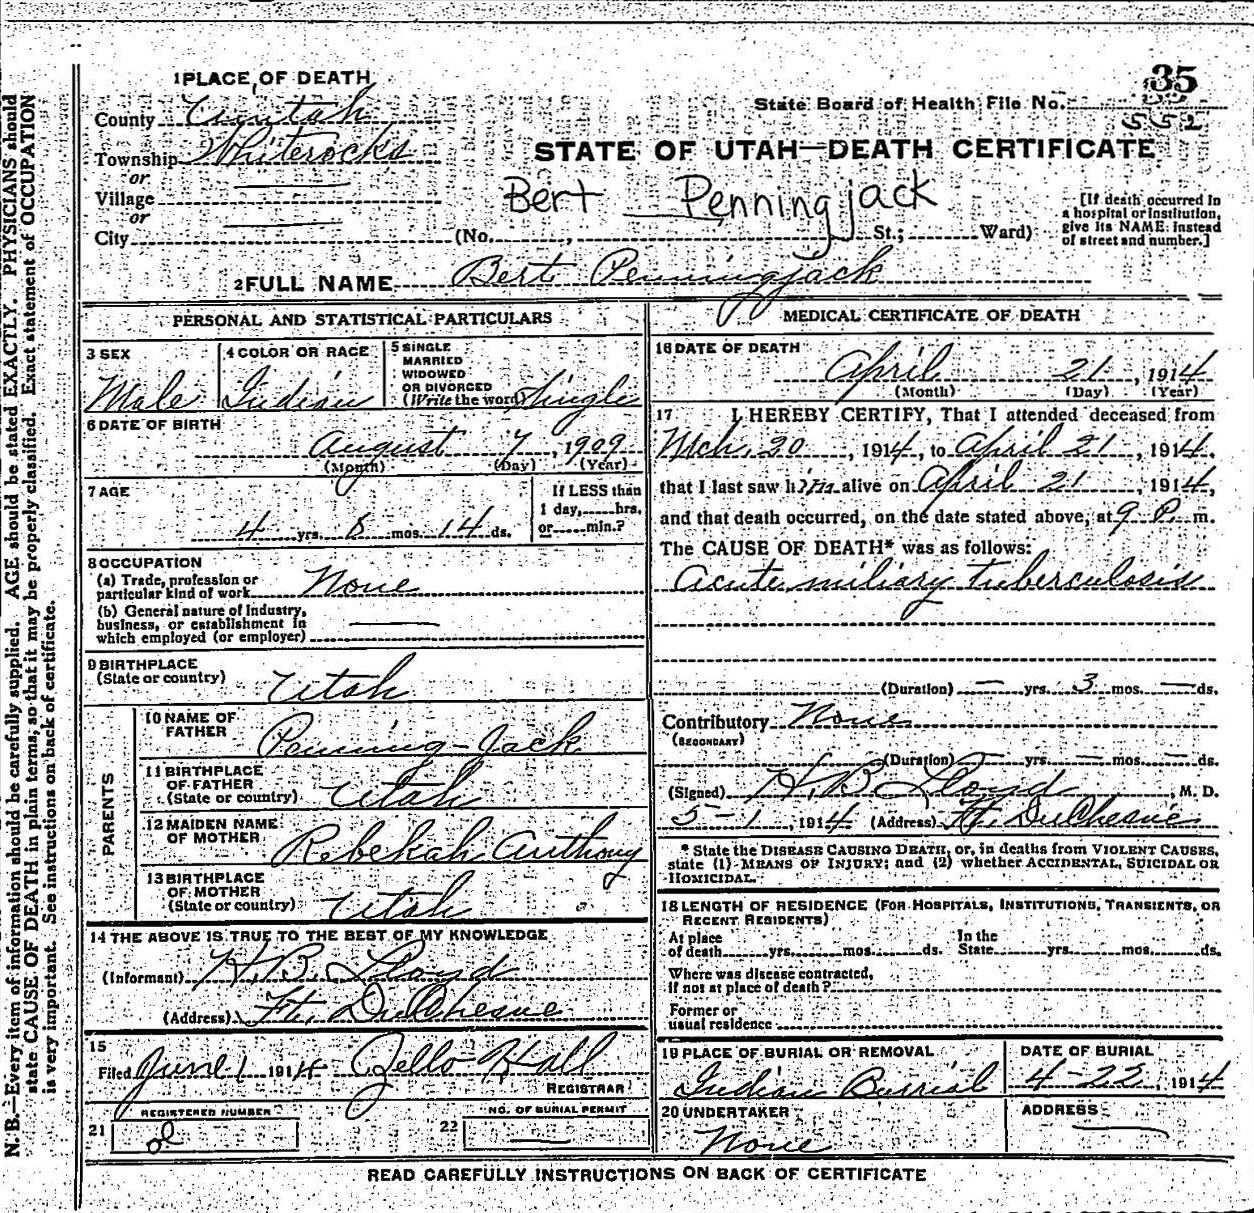 1 PLACE OF DEATH
County Uintah
Township Whiterocks
or
Village
or
City (No. , St.; Ward)
35
State Board of Health File No.
552
STATE OF UTAH—DEATH CERTIFICATE
Bert Penningjack
[If death occurred in
a hospital or institution,
give its NAME instead
of street and number.]
2 FULL NAME Bert Penningjack
PERSONAL AND STATISTICAL PARTICULARS
3 SEX
Male
4 COLOR OR RACE
Indian
5 SINGLE
MARRIED
WIDOWED
OR DIVORCED
(Write the word) Single
6 DATE OF BIRTH
August 7, 1909
(Month) (Day) (Year)
7 AGE
4 yrs. 8 mos. 14 ds.
If LESS than
1 day, hrs.
or min.?
8 OCCUPATION
(a) Trade, profession or
particular kind of work None
(b) General nature of industry,
business, or establishment in
which employed (or employer) —
9 BIRTHPLACE
(State or country) Utah
PARENTS
10 NAME OF
FATHER Penning-Jack
11 BIRTHPLACE
OF FATHER
(State or country) Utah
12 MAIDEN NAME
OF MOTHER Rebekah Anthony
13 BIRTHPLACE
OF MOTHER
(State or country) Utah
14 THE ABOVE IS TRUE TO THE BEST OF MY KNOWLEDGE
(Informant) H.B. Lloyd
(Address) Ft. DuChesne
15
Filed June 1 1914 Zello Hall
REGISTRAR
REGISTERED NUMBER
21
NO. OF BURIAL PERMIT
22 —
MEDICAL CERTIFICATE OF DEATH
16 DATE OF DEATH
April 21, 1914
(Month) (Day) (Year)
17 I HEREBY CERTIFY, That I attended deceased from
Mch. 20, 1914, to April 21, 1914,
that I last saw him alive on April 21, 1914,
and that death occurred, on the date stated above, at 9 P. m.
The CAUSE OF DEATH* was as follows:
Acute miliary tuberculosis
(Duration) — yrs. 3 mos. — ds.
Contributory None
(SECONDARY)
(Duration) — yrs. — mos. — ds.
(Signed) H.B. Lloyd, M. D.
5-1, 1914 (Address) Ft. DuChesne
* State the DISEASE CAUSING DEATH, or, in deaths from VIOLENT CAUSES,
state (1) MEANS OF INJURY; and (2) whether ACCIDENTAL, SUICIDAL OR
HOMICIDAL.
18 LENGTH OF RESIDENCE (FOR HOSPITALS, INSTITUTIONS, TRANSIENTS, OR
RECENT RESIDENTS)
At place
of death yrs. mos. ds.
In the
State yrs. mos. ds.
Where was disease contracted,
if not at place of death?
Former or
usual residence
19 PLACE OF BURIAL OR REMOVAL
Indian Burrial
DATE OF BURIAL
4-22, 1914
20 UNDERTAKER
None
ADDRESS
—
READ CAREFULLY INSTRUCTIONS ON BACK OF CERTIFICATE
N. B.—Every item of information should be carefully supplied. AGE should be stated EXACTLY. PHYSICIANS should
state CAUSE OF DEATH in plain terms, so that it may be properly classified. Exact statement of OCCUPATION
is very important. See instructions on back of certificate.